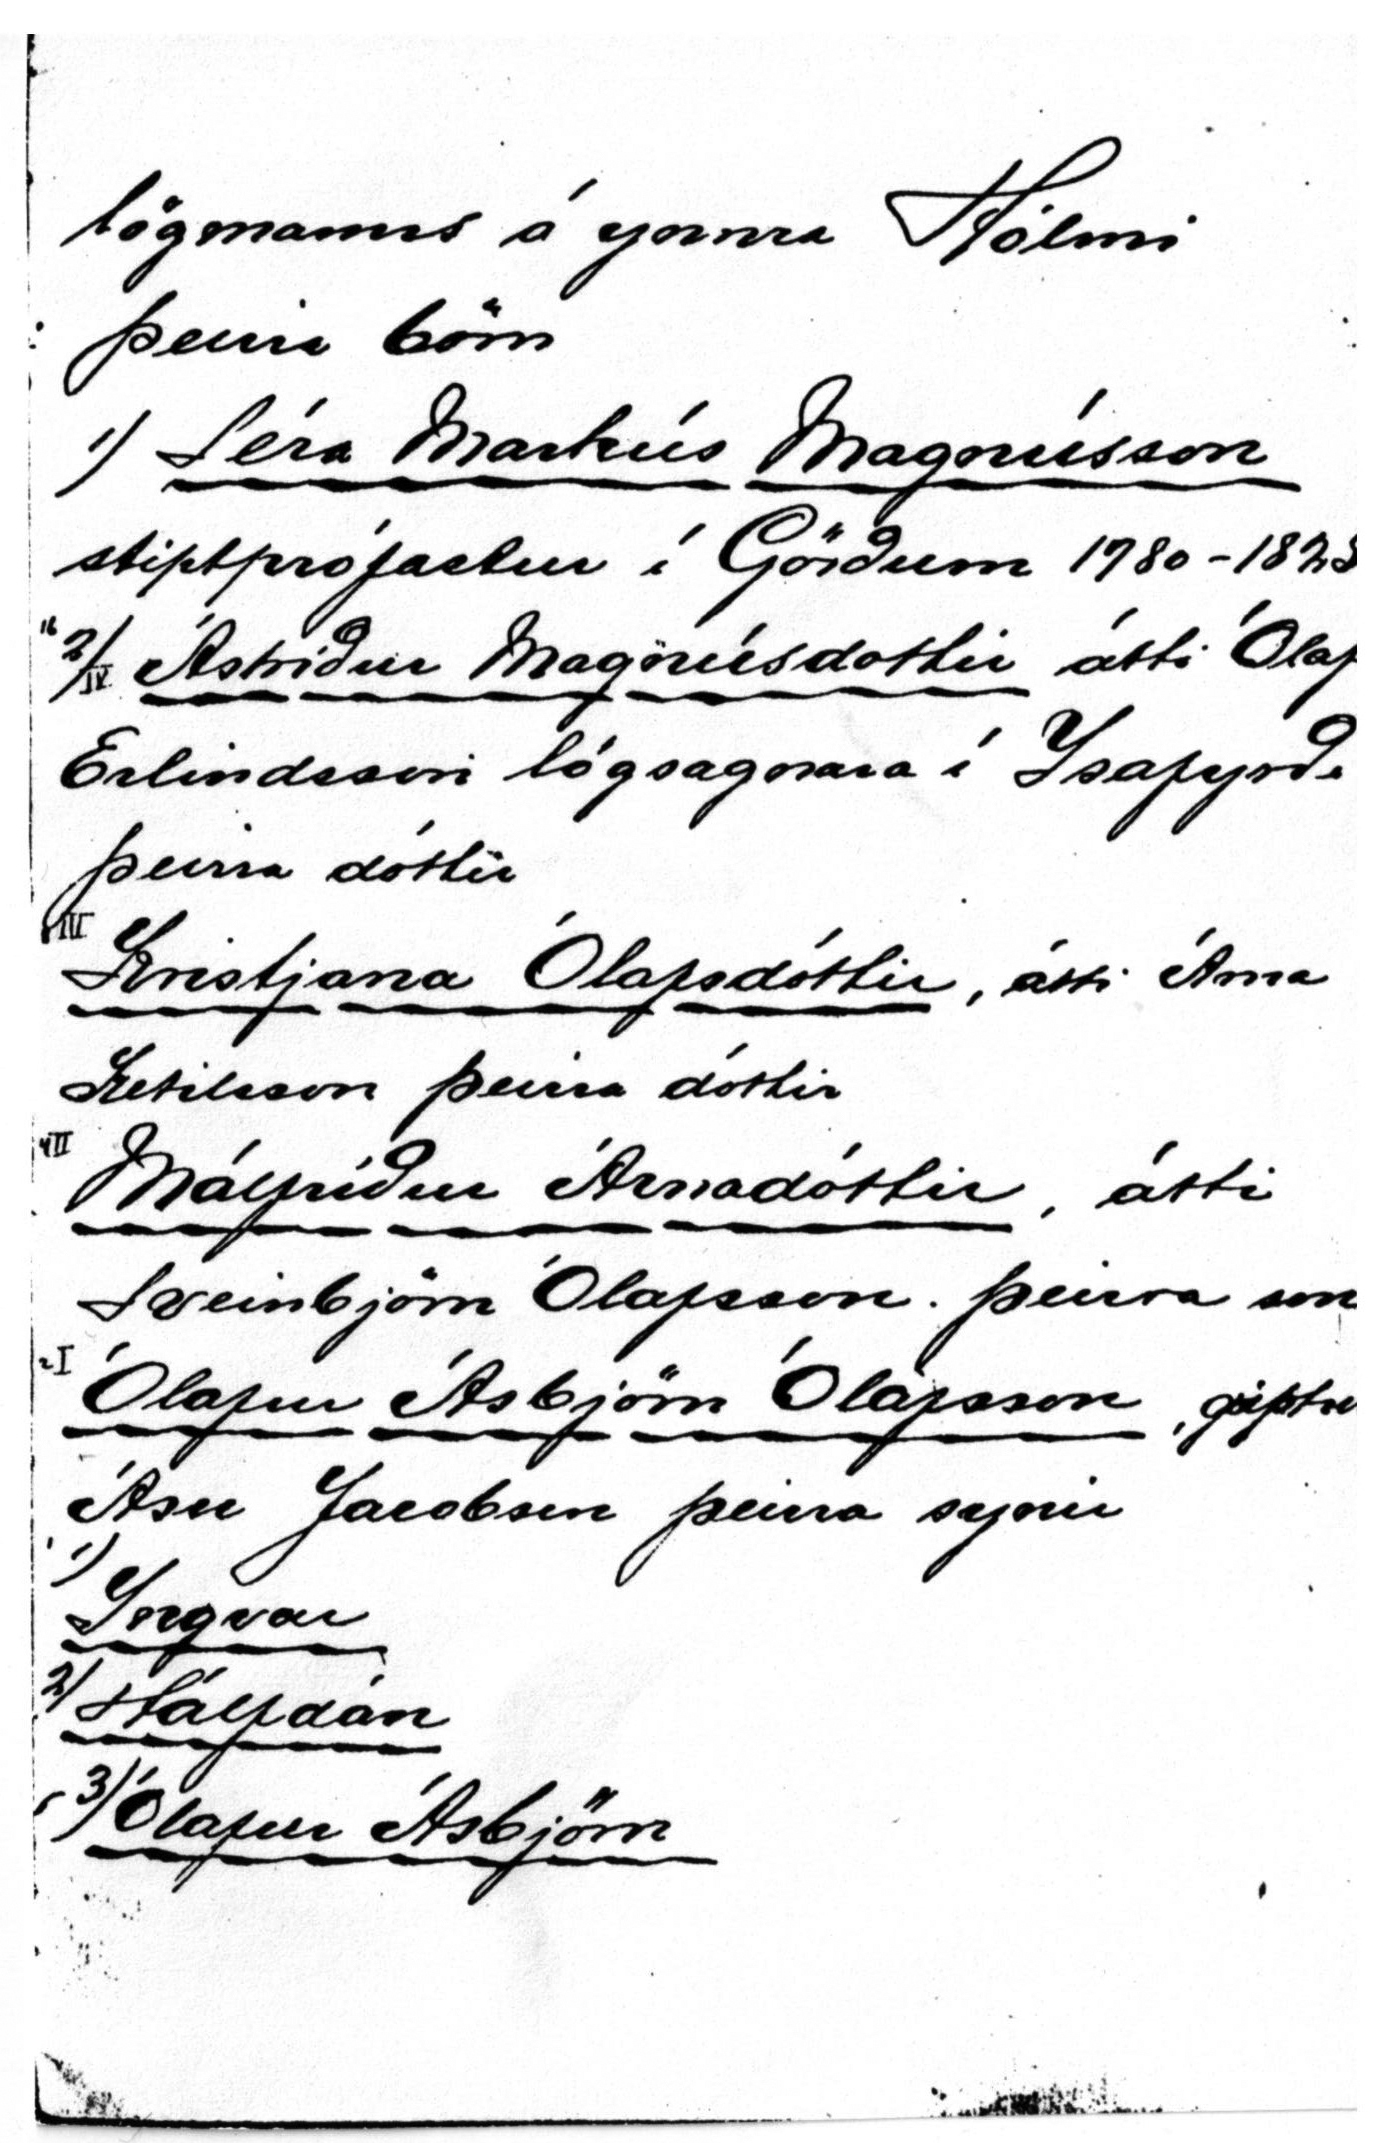 lögmanns á ynnra Hólmi
þeirra börn
1) Séra Markús Magnússon
stiptprófastur í Görðum 1780-1825
16 2) IV Ástríður Magnúsdottir átti Ólaf
Erlindssoni lógsagnara í Isafyrði
þeirra dóttir
8 III Kristjana Ólafsdóttir, átti Árna
Ketilsson þeirra dóttir
4 II Málfríður Árnadóttir, átti
Sveinbjörn Ólafsson. þeirra son
2 I Ólafur Ásbjörn Ólafsson, giptur
Ásu Jacobsen þeirra synir
1)
Ingvar
2) Hálfdán
3) Ólafur Ásbjörn